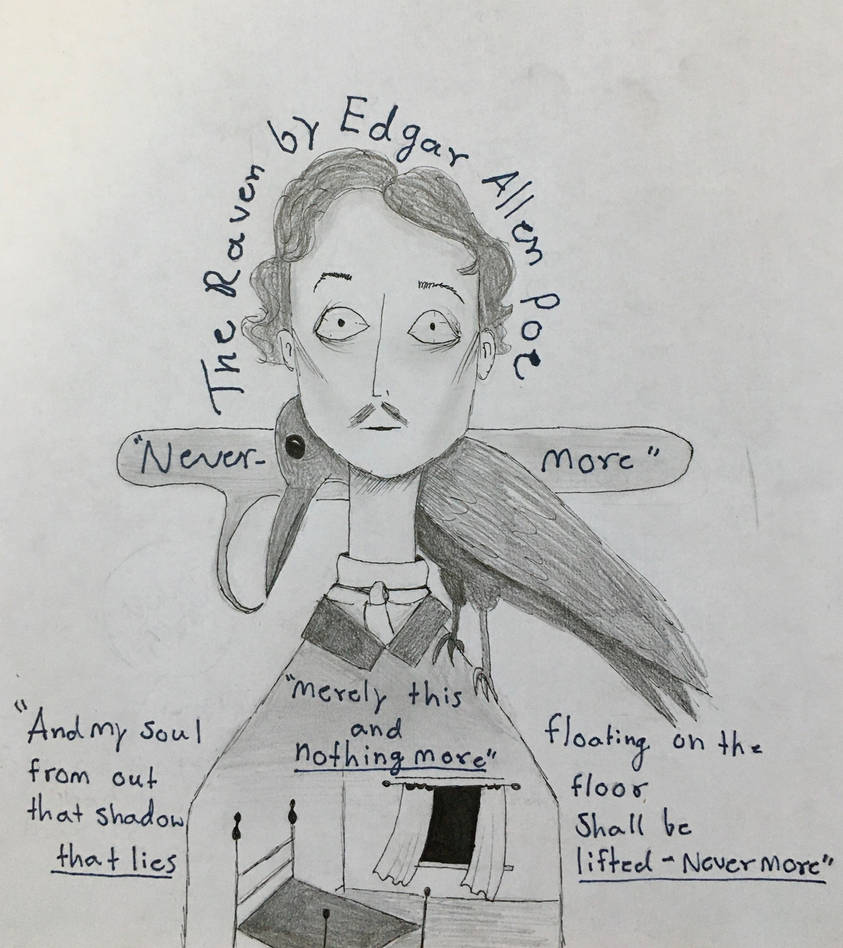 The Raven by Edgar Allen Poe
"Never- more"
"merely this
and
nothing more"
"And my soul
from out
that shadow
that lies
floating on the
floor
Shall be
lifted - Never more"